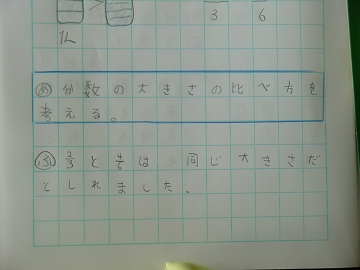 3 6
1L
め 分数の大きさの比べ方を
考える。
ふ 2/3と4/6は 同じ大きさだ
としれました。